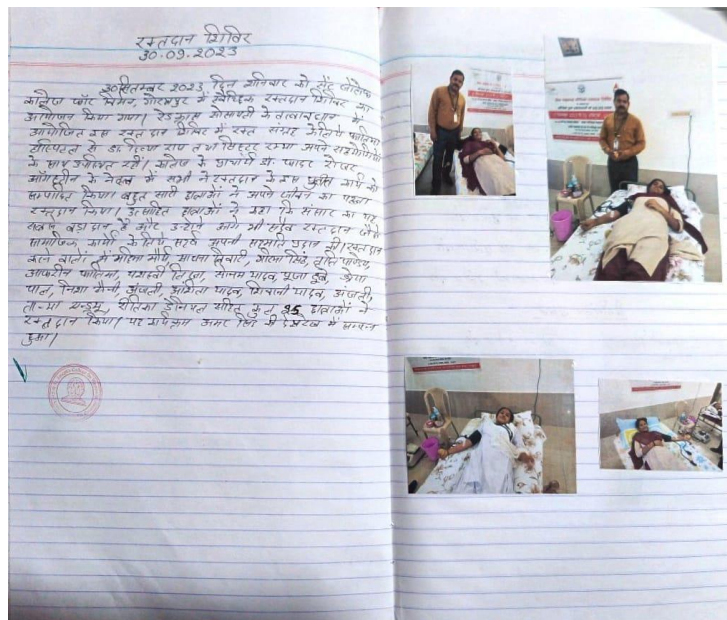 रक्तदान शिविर
30.09.2023
30 सितम्बर 2023, दिन शनिवार को सेंट जोसेफ
कॉलेज फॉर विमेन, गोरखपुर में स्वैच्छिक रक्तदान शिविर का
आयोजन किया गया। रेड क्रास सोसायटी के तत्वावधान में
आयोजित इस रक्तदान शिविर में रक्त संग्रह के लिये फातिमा
हॉस्पिटल से डा. दिव्या राय तथा सिस्टर रम्या अपने सहयोगियों
के साथ उपस्थित रहीं। कॉलेज के प्राचार्य डॉ. फादर रोजर
ऑगस्टीन के नेतृत्व में सभी ने रक्तदान के इस पुनीत कार्य को
सम्पादित किया। बहुत सारी छात्राओं ने अपने जीवन का पहला
रक्तदान किया। उत्साहित छात्राओं ने कहा कि संसार का यह
सबसे बड़ा दान है और उन्होंने आगे भी सदैव रक्तदान जैसे
सामाजिक कार्यों के लिये सहर्ष अपनी सहमति प्रदान की। रक्तदान
करने वालों में मौर्या, तिवारी, सिंह, पाण्डेय,
आफरीन फातिमा, यशस्वी सोनम यादव, पूजा दुबे, श्वेता
पाल, निशा सैनी, अंजली, अंकिता यादव, शिवानी यादव, अंजली,
सहित कुल 25 छात्राओं ने
रक्तदान किया। यह कार्यक्रम अमर सिंह की देखरेख में सम्पन्न
हुआ।